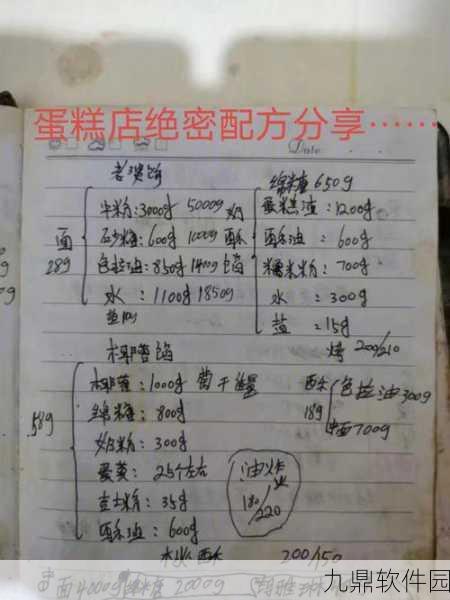 蛋糕店绝密配方分享……
Date
老婆饼
绵糖 650g
面 28g
中粉:3000g 5000g
砂糖:600g 1000g
色拉油:850g 1400g
水:1100g 1850g
奶酥馅
蛋糕渣:1200g
酥油:600g
糯米粉:700g
水:300g
盐:15g
烤 200/210
椰蓉馅
58g
椰蓉:1000g
绵糖:800g
奶粉:300g
蛋:25个左右
吉士粉:35g
酥油:600g
酥 18g
色拉油300g
面700g
油炸
180/220
水 酥
200/150
中面4000g 糖 2000g
九鼎软件园